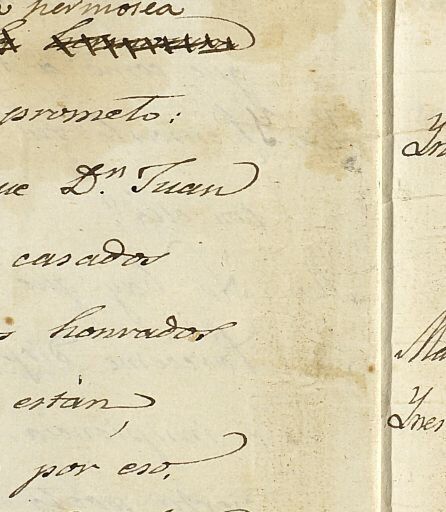 hermosea
prometo:
ue Dⁿ. Juan
casados
s honrados
están,
por eso,
Yn
Ma
Ynes